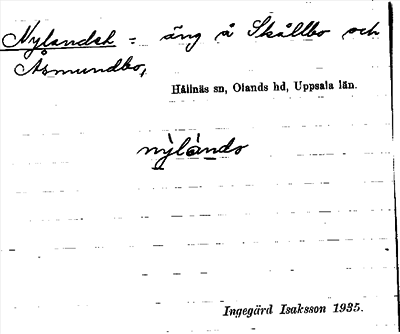 Nylandet = äng å Skållbo och
Åsmundbo,
Hållnäs sn, Olands hd, Uppsala län.
nỳlándo
Ingegärd Isaksson 1935.